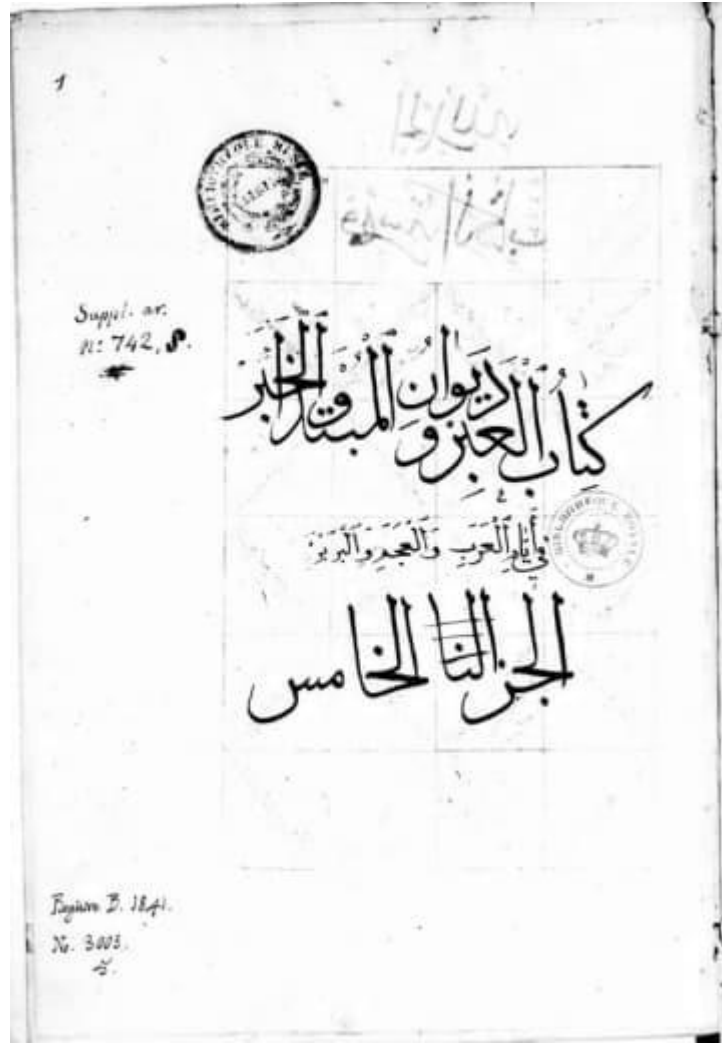 1
Suppl. ar.
n: 742, 8.
كِتَابُ الْعِبَرِ وَدِيوَانُ الْمُبْتَدَا وَالْخَبَرِ
فِي أَيَّامِ الْعَرَبِ وَالْعَجَمِ وَالْبَرْبَرِ
الجز الخامس
B. 1841.
No. 3003.
5.